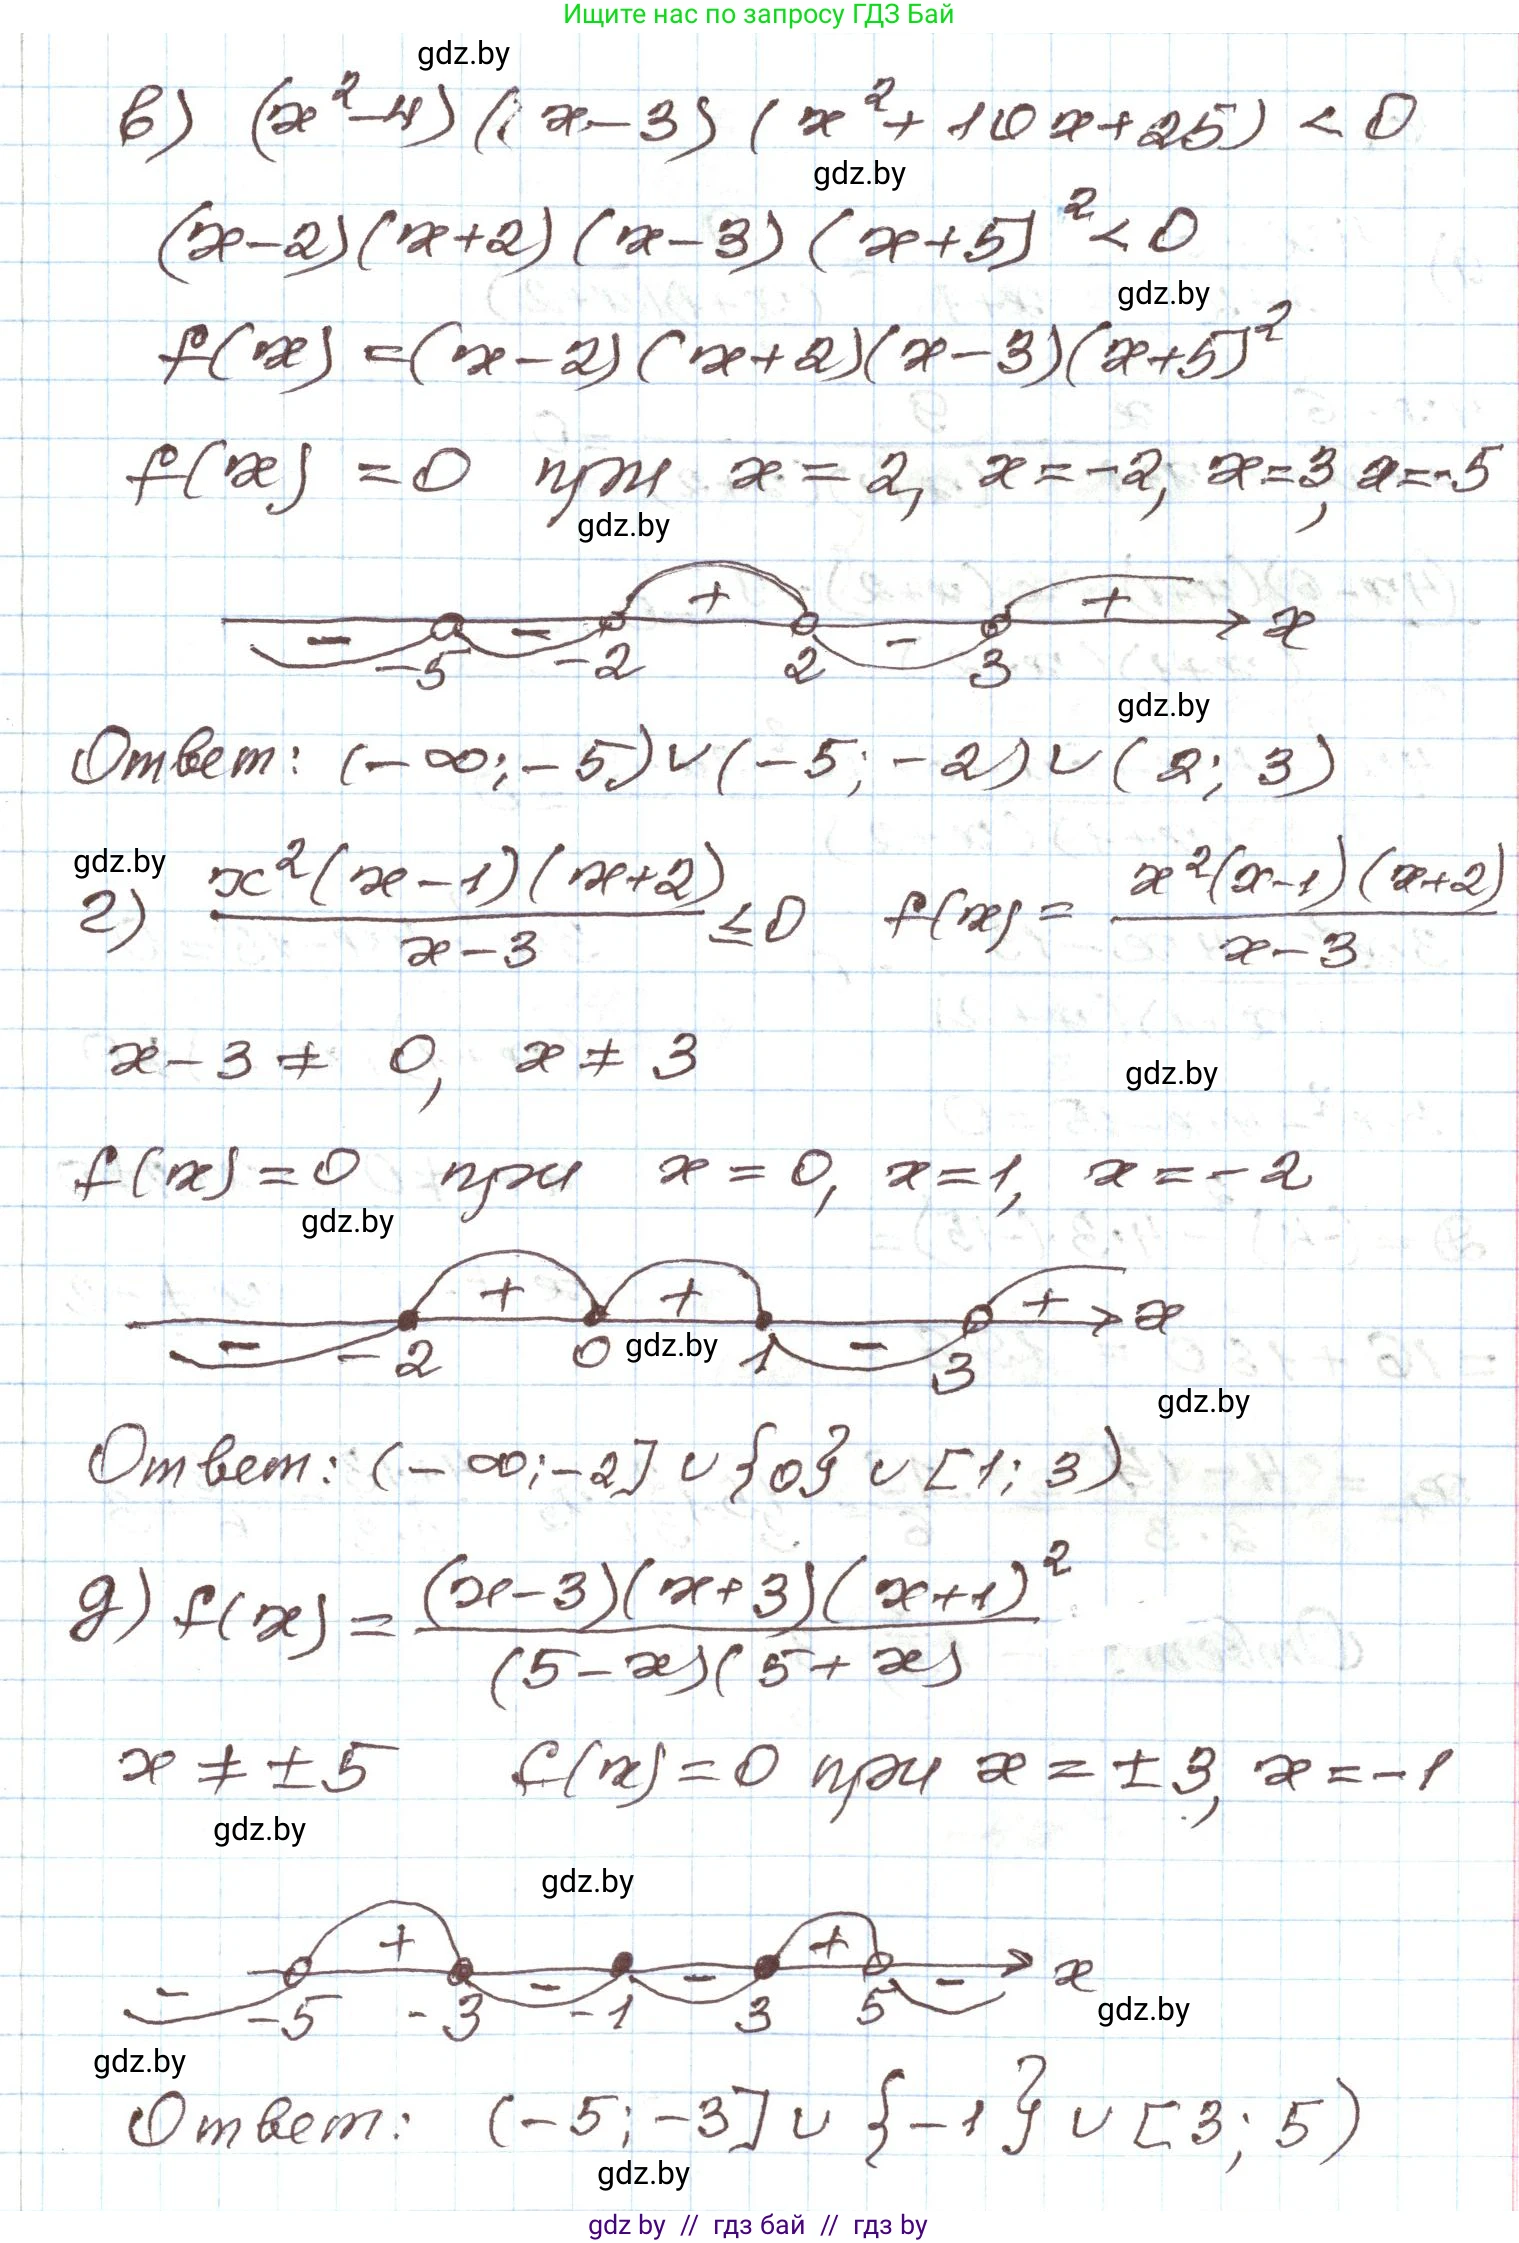 Ищите нас по запросу ГДЗ Бай
gdz.by
в) (x²-4)(x-3)(x²+10x+25) < 0
gdz.by
(x-2)(x+2)(x-3)(x+5)² < 0
gdz.by
f(x) = (x-2)(x+2)(x-3)(x+5)²
f(x) = 0 при x = 2, x = -2, x = 3, x = -5
gdz.by
- - + - + x
-5 -2 2 3
gdz.by
Ответ: (-∞; -5) ∪ (-5; -2) ∪ (2; 3)
gdz.by
г) x²(x-1)(x+2)/(x-3) ≤ 0 f(x) = x²(x-1)(x+2)/(x-3)
x-3 ≠ 0, x ≠ 3
gdz.by
f(x) = 0 при x = 0, x = 1, x = -2
gdz.by
- + + - + x
-2 0 gdz.by 1 3
gdz.by
Ответ: (-∞; -2] ∪ {0} ∪ [1; 3)
д) f(x) = (x-3)(x+3)(x+1)²/(5-x)(5+x)
x ≠ ±5 f(x) = 0 при x = ±3, x = -1
gdz.by
gdz.by
- + - - + - x
-5 -3 -1 3 5
gdz.by
gdz.by
Ответ: (-5; -3] ∪ {-1} ∪ [3; 5)
gdz.by
gdz by // гдз бай // гдз by